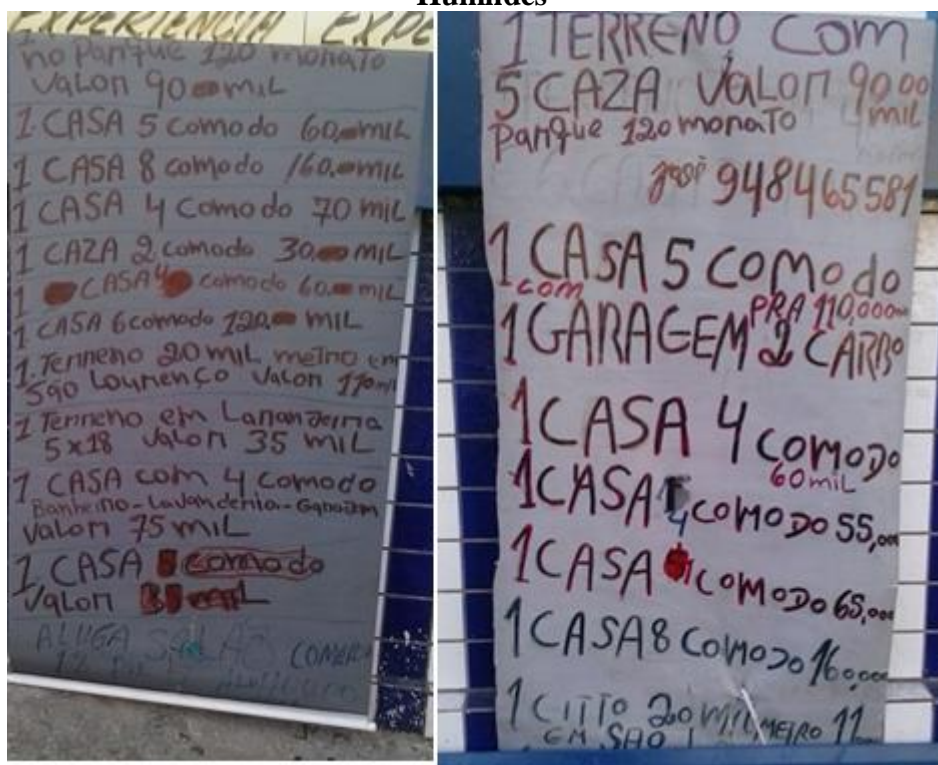 Humildes
EXPERIENCIA EXPE
no panque 120 monato
Valon 90 miL
1 CASA 5 comodo 60, miL
1 CASA 8 comodo 160, miL
1 CASA 4 comodo 70 miL
1 CAZA 2 comodo 30, miL
1 CASA 4 comodo 60, miL
1 CASA 6 comodo 120, miL
1. Tenneno 20 miL metno em
São Lounenço Valon 110 mil
1 Tenneno em Lananzeina
5x18 Valon 35 MIL
1 CASA com 4 comodo
Banheino-Lavandenia-Ganagem
Valon 75 MIL
1 CASA comodo
Valon
ALUGA SALÃO COMER
12
1 TERRENO COM
5 CAZA VALON 90,00
panque 120 monaTo mil
José 948465581
1 CASA 5 COMOdo
com PRA 110,000
1 GARAGEM 2 CARRO
1 CASA 4 COMODO
60 mil
1 CASA 4 COMODO 55,000
1 CASA COMODO 65,000
1 CASA 8 COMODO 160,000
1 CITIO 20 MIL METRO 11
EM SAO